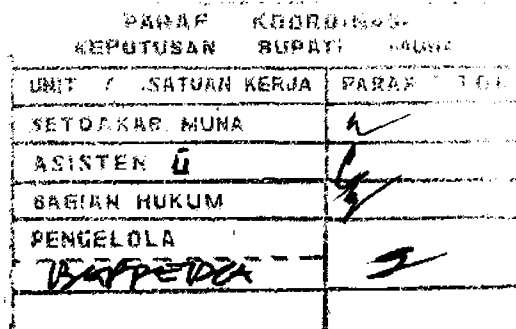 PARAF KOORDINASI
KEPUTUSAN BUPATI MUNA
UNIT / SATUAN KERJA PARAF
SETDAKAB. MUNA
ASISTEN II
BAGIAN HUKUM
PENGELOLA
BAPPEDA